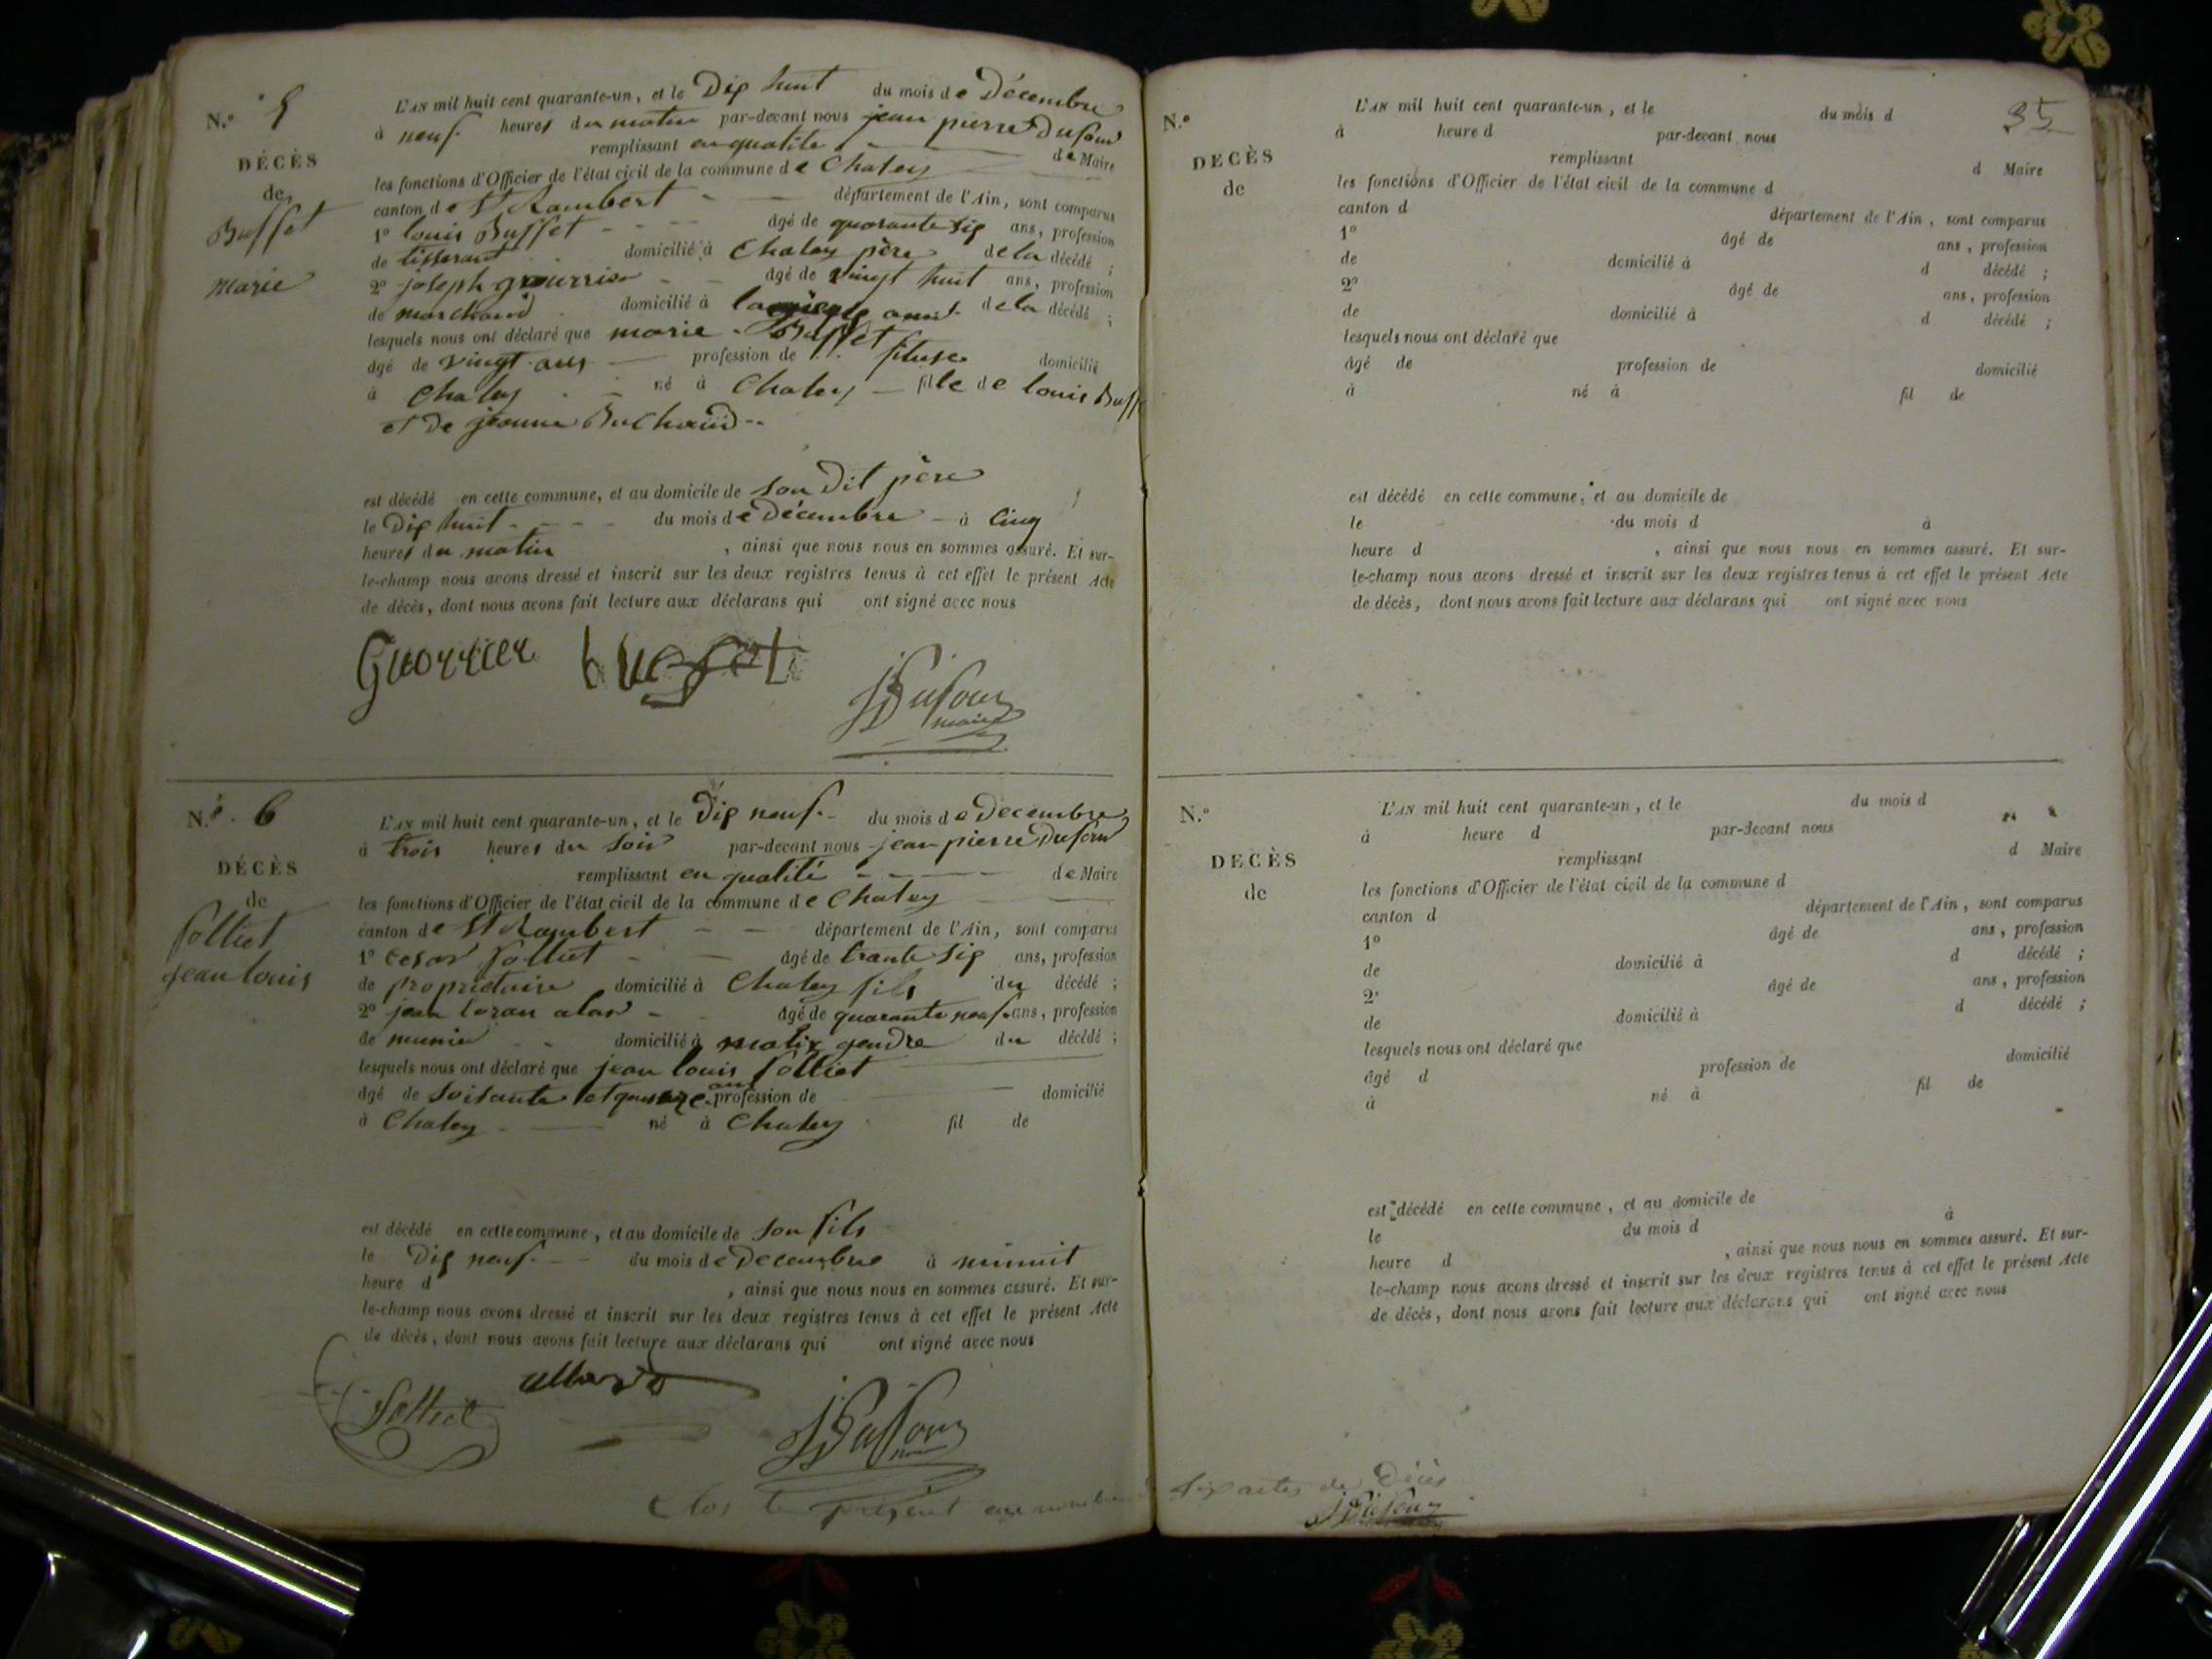 N.º 5
DÉCÈS
de
Buffet
marie
L'AN mil huit cent quarante-un, et le Dix huit du mois de Décembre
à neuf heures du matin par-devant nous jean pierre Dufour
remplissant en qualité de Maire
les fonctions d'Officier de l'état civil de la commune de Chaley
canton de St Rambert département de l'Ain, sont comparus
1º louis Buffet âgé de quarante six ans, profession
de tisserant domicilié à Chaley père de la décédé ;
2º joseph âgé de vingt huit ans, profession
de marchand domicilié à ami de la décédé ;
lesquels nous ont déclaré que marie Buffet
âgé de vingt ans profession de fileuse domicilié
à Chaley né à Chaley fille de louis Buff
et De jeanne
est décédé en cette commune, et au domicile de son Dit père
le Dix huit du mois de Décembre à Cinq
heures du matin , ainsi que nous nous en sommes assuré. Et sur-
le-champ nous avons dressé et inscrit sur les deux registres tenus à cet effet le présent Acte
de décès, dont nous avons fait lecture aux déclarans qui ont signé avec nous
Guorrier buffet
JPDufour
maire
N.º 6
DÉCÈS
de
folliet
jean louis
L'AN mil huit cent quarante-un, et le Dix neuf du mois de Decembre
à trois heures du Soir par-devant nous jean pierre Dufour
remplissant en qualité de Maire
les fonctions d'Officier de l'état civil de la commune de Chaley
canton de St Rambert département de l'Ain, sont comparus
1º Cesar folliet âgé de trante six ans, profession
de propriétaire domicilié à Chaley fils du décédé ;
2º jean âgé de quarante neuf ans, profession
de munier domicilié à gendre du décédé ;
lesquels nous ont déclaré que jean louis folliet
âgé de soisante et quinze ans profession de domicilié
à Chaley né à Chaley fil de
est décédé en cette commune, et au domicile de son fils
le Dix neuf du mois de Decembre à minuit
heure d , ainsi que nous nous en sommes assuré. Et sur-
le-champ nous avons dressé et inscrit sur les deux registres tenus à cet effet le présent Acte
de décès, dont nous avons fait lecture aux déclarans qui ont signé avec nous
folliet
JPDufour
Clos le présent au nombre de six actes de Décès
JPDufour
35
N.º
DECÈS
de
L'AN mil huit cent quarante-un, et le du mois d
à heure d par-devant nous
remplissant d Maire
les fonctions d'Officier de l'état civil de la commune d
canton d département de l'Ain, sont comparus
1º âgé de ans, profession
de domicilié à d décédé ;
2º âgé de ans, profession
de domicilié à d décédé ;
lesquels nous ont déclaré que
âgé de profession de domicilié
à né à fil de
est décédé en cette commune, et au domicile de
le du mois d à
heure d , ainsi que nous nous en sommes assuré. Et sur-
le-champ nous avons dressé et inscrit sur les deux registres tenus à cet effet le présent Acte
de décès, dont nous avons fait lecture aux déclarans qui ont signé avec nous
N.º
DECÈS
de
L'AN mil huit cent quarante-un, et le du mois d
à heure d par-devant nous
remplissant d Maire
les fonctions d'Officier de l'état civil de la commune d
canton d département de l'Ain, sont comparus
1º âgé de ans, profession
de domicilié à d décédé ;
2º âgé de ans, profession
de domicilié à d décédé ;
lesquels nous ont déclaré que
âgé d profession de domicilié
à né à fil de
est décédé en cette commune, et au domicile de
le du mois d à
heure d , ainsi que nous nous en sommes assuré. Et sur-
le-champ nous avons dressé et inscrit sur les deux registres tenus à cet effet le présent Acte
de décès, dont nous avons fait lecture aux déclarans qui ont signé avec nous